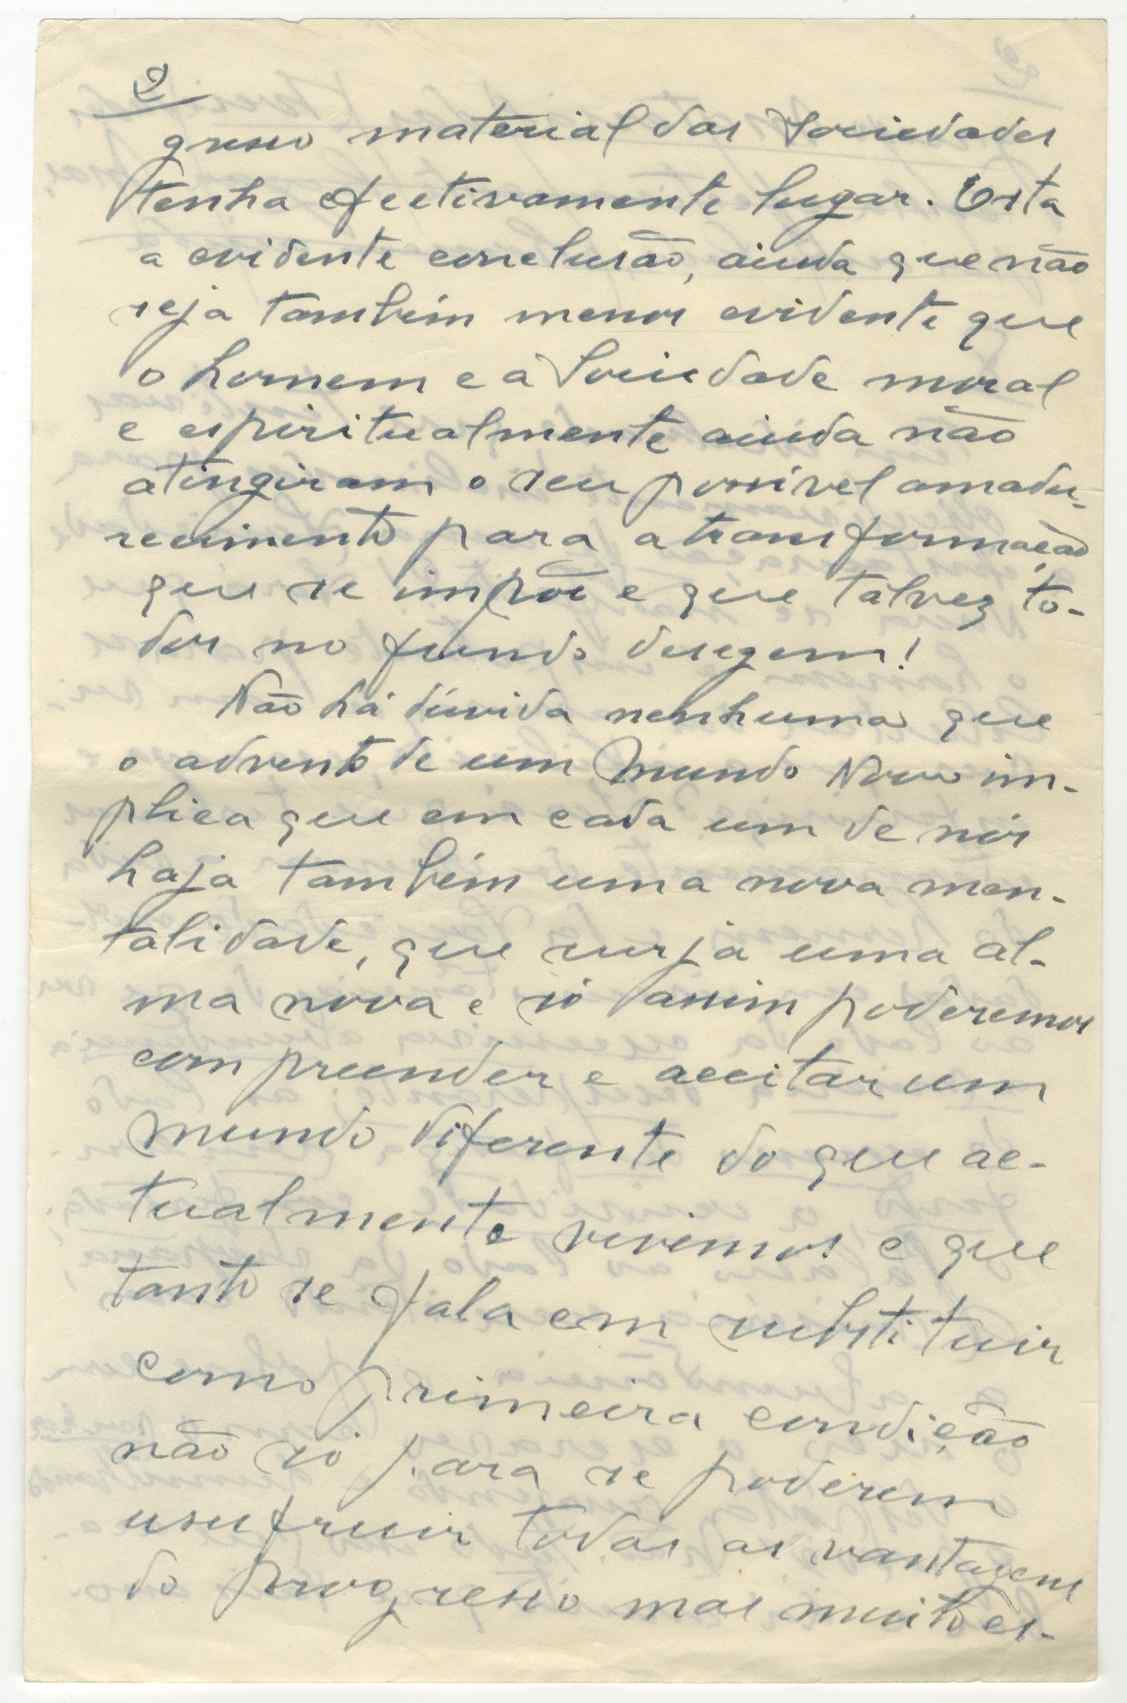 2
gresso material das Sociedades
tenha efectivamente lugar. Esta
a evidente conclusão, ainda que não
seja também menos evidente que
o homem e a Sociedade moral
e espiritualmente ainda não
atingiram o seu possível amadu-
recimento para a transformação
que se impõe e que talvez to-
dos no fundo desejem!
Não há dúvida nenhuma que
o advento de um Mundo Novo im-
plica que em cada um de nós
haja também uma nova men-
talidade, que surja uma al-
ma nova e só assim poderemos
compreender e aceitar um
mundo diferente do que ac-
tualmente vivemos e que
tanto se fala em substituir
como primeira condição
não só para se poderem
usufruir todas as vantagens
do progresso mas muito es-